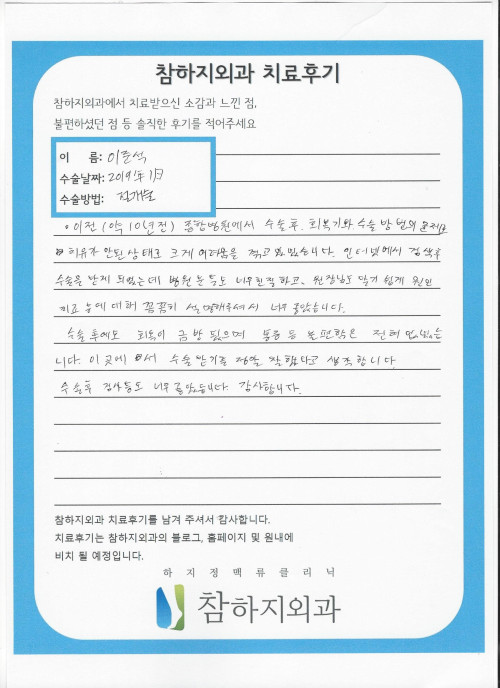 참하지외과 치료후기
참하지외과에서 치료받으신 소감과 느낀 점,
불편하셨던 점 등 솔직한 후기를 적어주세요
이 름: 이준석
수술날짜: 2019년 1월
수술방법:
이전 (약 10년전) 종합병원에서 수술후. 회복기와 수술 방법의 문제로
치유가 안된 상태로 크게 어려움을 겪고 있었습니다. 인터넷에서 검색후
수술을 받게 되었는데 병원 분들도 너무 친절하고, 원장님도 알기 쉽게 원인
치료 등에 대해 꼼꼼히 설명해주셔서 너무 좋았습니다.
수술 후에도 회복이 금방 됐으며 통증 등 불편함은 전혀 없었습
니다. 이 곳에서 수술 받기를 정말 잘했다고 생각합니다.
수술후 검사 등도 너무 좋았습니다. 감사합니다.
참하지외과 치료후기를 남겨 주셔서 감사합니다.
치료후기는 참하지외과의 블로그, 홈페이지 및 원내에
비치 될 예정입니다.
하지정맥류클리닉
참하지외과